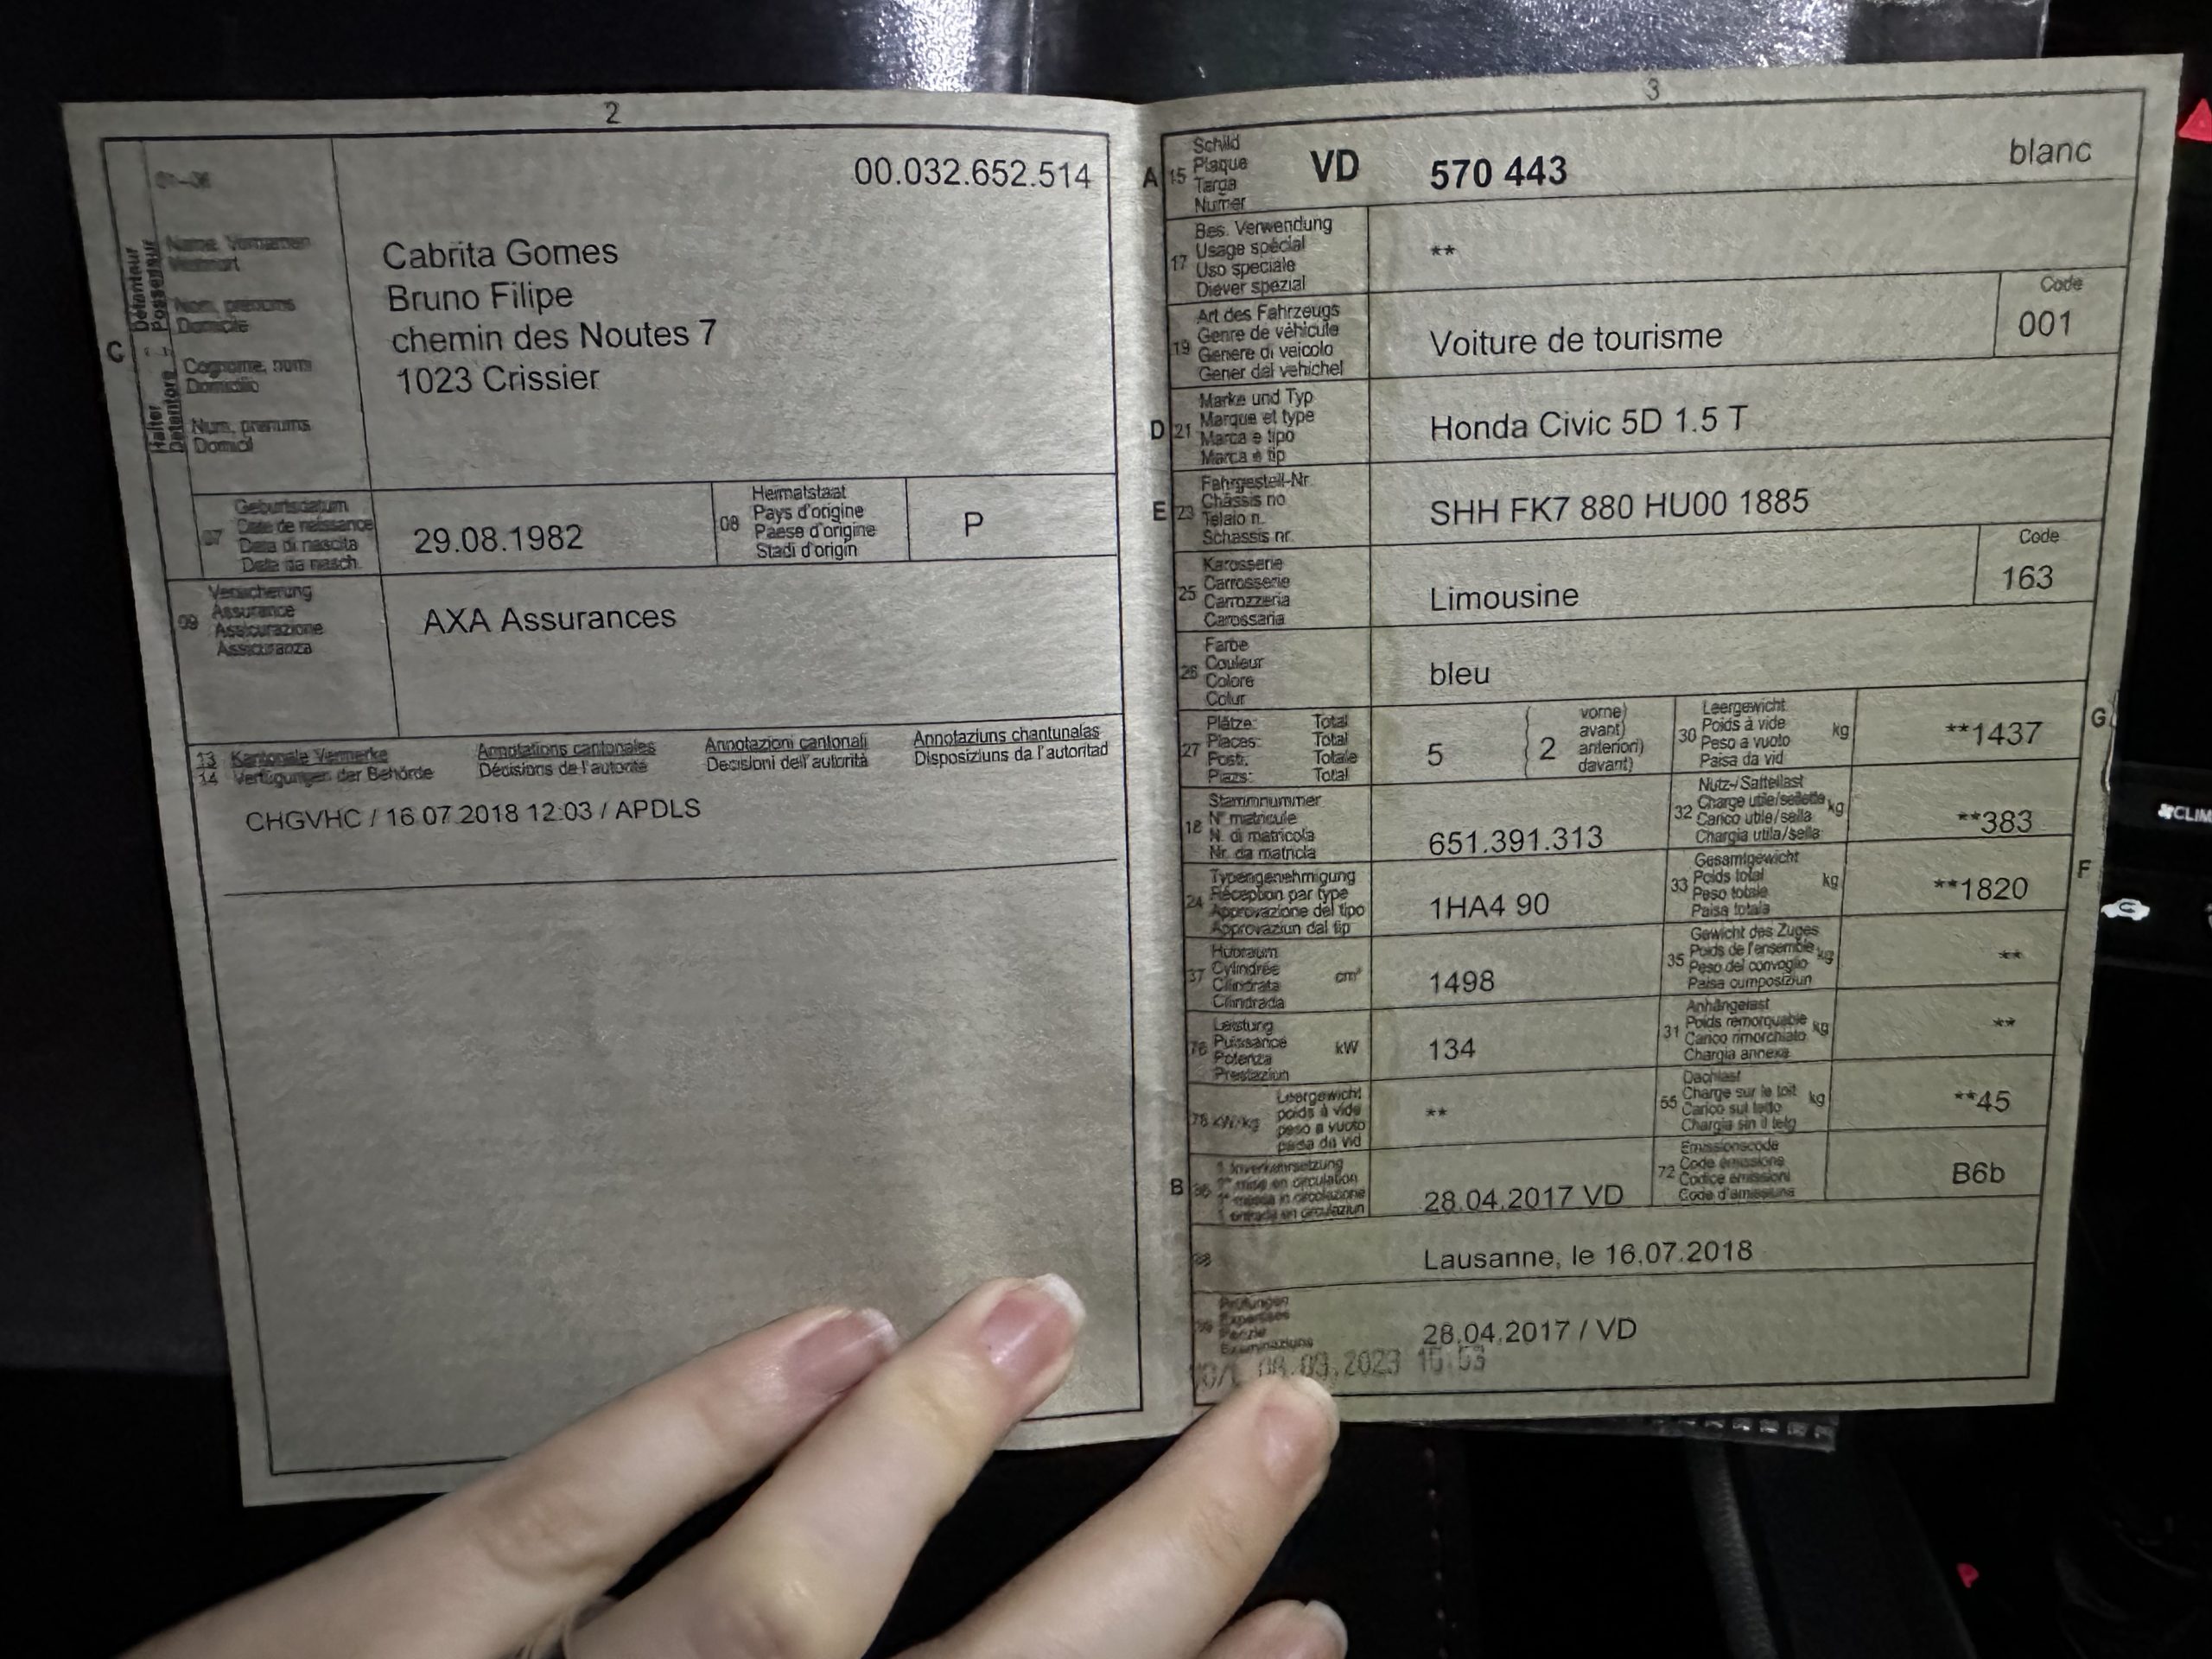 2
00.032.652.514
C
Détenteur
Possessur
Halter
Detentore
Name, Vornamen
Wohnort
Nom, prénoms
Domicile
Cognome, nomi
Domicilio
Num, prenums
Domicil
Cabrita Gomes
Bruno Filipe
chemin des Noutes 7
1023 Crissier
07
Geburtsdatum
Date de naissance
Data di nascita
Data da nasch.
29.08.1982
08
Heimatstaat
Pays d'origine
Paese d'origine
Stadi d'origin
P
09
Versicherung
Assurance
Assicurazione
Assicuranza
AXA Assurances
13 Kantonale Vermerke Annotations cantonales Annotazioni cantonali Annotaziuns chantunalas
14 Verfügungen der Behörde Décisions de l'autorité Decisioni dell'autorità Disposiziuns da l'autoritad
CHGVHC / 16.07.2018 12:03 / APDLS
3
A 15
Schild
Plaque
Targa
Numer
VD 570 443 blanc
17
Bes. Verwendung
Usage spécial
Uso speciale
Diever spezial
**
19
Art des Fahrzeugs
Genre de véhicule
Genere di veicolo
Gener dal vehichel
Voiture de tourisme
Code
001
D 21
Marke und Typ
Marque et type
Marca e tipo
Marca e tip
Honda Civic 5D 1.5 T
E 23
Fahrgestell-Nr.
Châssis no
Telaio n.
Schassis nr.
SHH FK7 880 HU00 1885
25
Karosserie
Carrosserie
Carrozzeria
Carossaria
Limousine
Code
163
26
Farbe
Couleur
Colore
Colur
bleu
27
Plätze: Total
Places: Total
Posti: Totale
Plazs: Total
5
2
vorne)
avant)
anteriori)
davant)
30
Leergewicht
Poids à vide kg
Peso a vuoto
Paisa da vid
**1437
G
18
Stammnummer
N° matricule
N. di matricola
Nr. da matricla
651.391.313
32
Nutz-/Sattellast
Charge utile/sellette kg
Carico utile/sella
Chargia utila/sella
**383
24
Typengenehmigung
Réception par type
Approvazione del tipo
Approvaziun dal tip
1HA4 90
33
Gesamtgewicht
Poids total kg
Peso totale
Paisa totala
**1820
F
37
Hubraum
Cylindrée cm³
Cilindrata
Cilindrada
1498
35
Gewicht des Zuges
Poids de l'ensemble kg
Peso del convoglio
Paisa cumposiziun
**
76
Leistung
Puissance kW
Potenza
Prestaziun
134
31
Anhängelast
Poids remorquable kg
Carico rimorchiato
Chargia annexa
**
78 kW/kg
Leergewicht
poids à vide
peso a vuoto
paisa da vid
**
55
Dachlast
Charge sur le toit kg
Carico sul tetto
Chargia sin il tetg
**45
B 36
1. Inverkehrsetzung
1re mise en circulation
1a messa in circolazione
1. entrada en circulaziun
28.04.2017 VD
72
Emissionscode
Code émissions
Codice emissioni
Code d'emissiuns
B6b
38
Lausanne, le 16.07.2018
39
Prüfungen
Expertises
Perizie
Examinaziuns
28.04.2017 / VD
.09.2023
CLIM